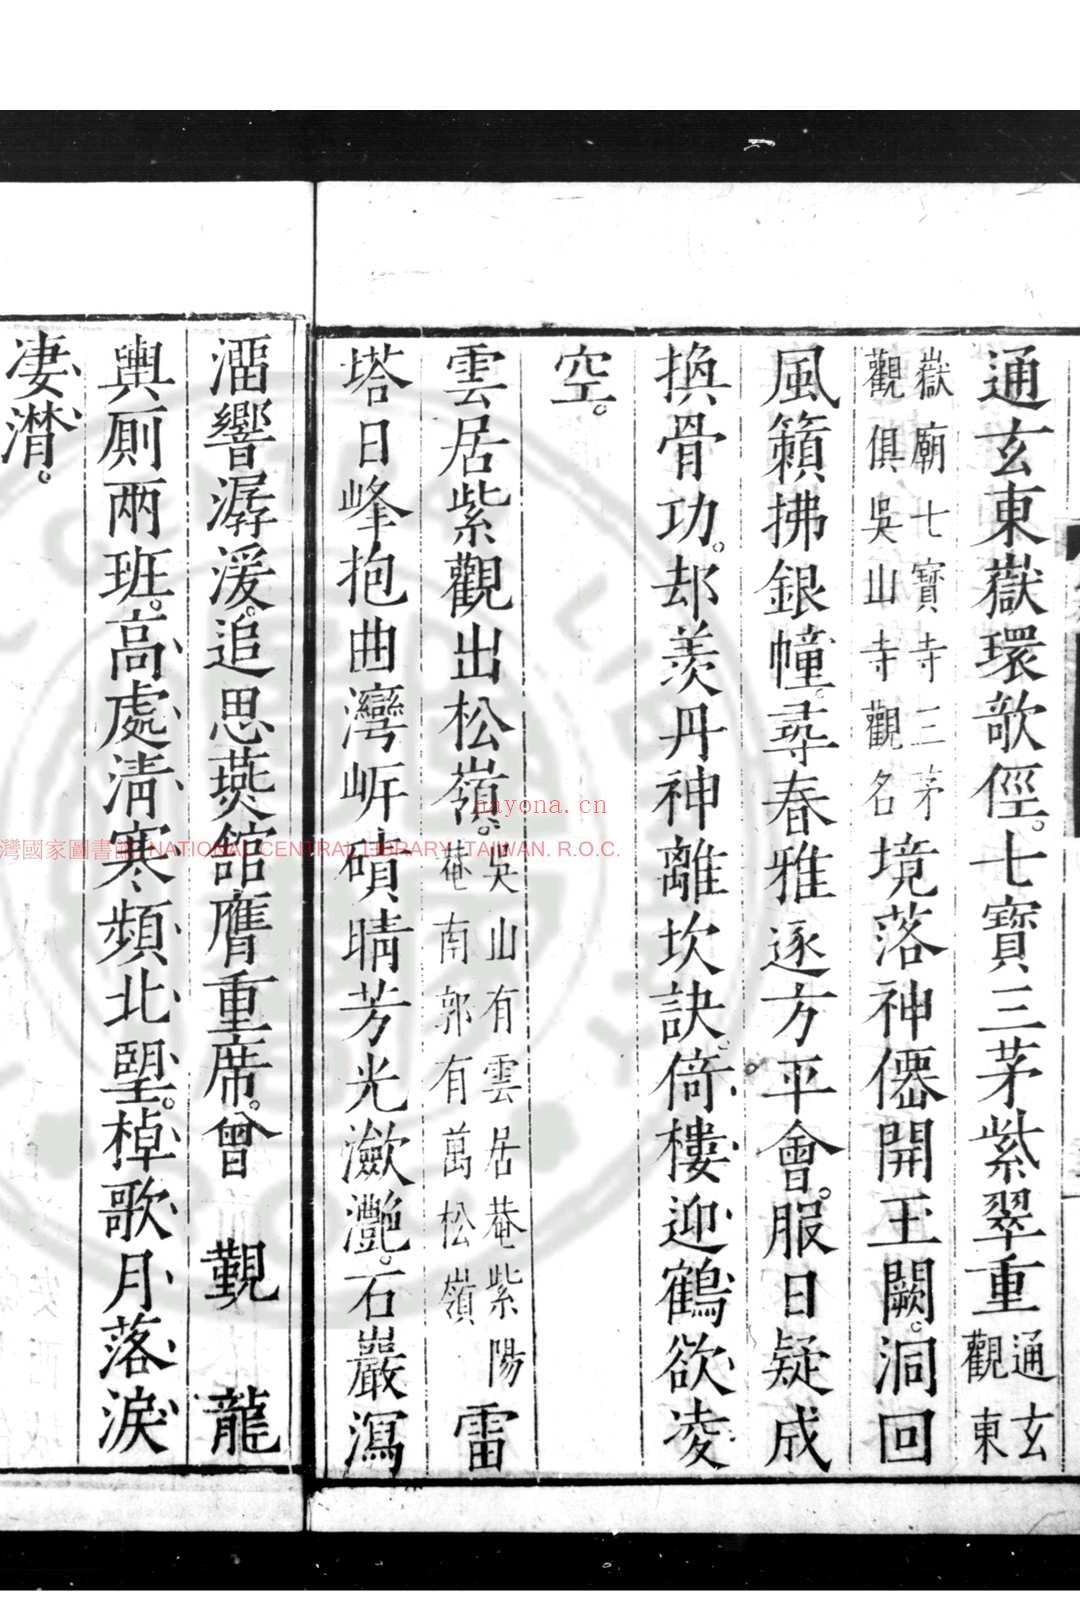 通玄東嶽環欹徑。七寶三茅紫翠重通玄觀東
嶽廟七寶寺三茅觀俱吳山寺觀名境落神僊開玉闕。洞回
風籟拂銀幢。尋春雅逐方平會。服日疑成
換骨功。却羨丹神離坎訣。倚樓迎鶴欲凌
空。
雲居紫觀出松嶺。吳山有雲居菴紫陽菴南郭有萬松嶺雷
塔日峰抱曲灣岍磧晴芳光瀲灔。石巖瀉
湽響潺湲。追思燕館膺重席。曾覲龍
輿厠兩班。高處清寒頻北朢。棹歌月落淚
凄潸。
nayona.cn
灣國家圖書館 NATIONAL CENTRAL LIBRARY, TAIWAN, R.O.C.